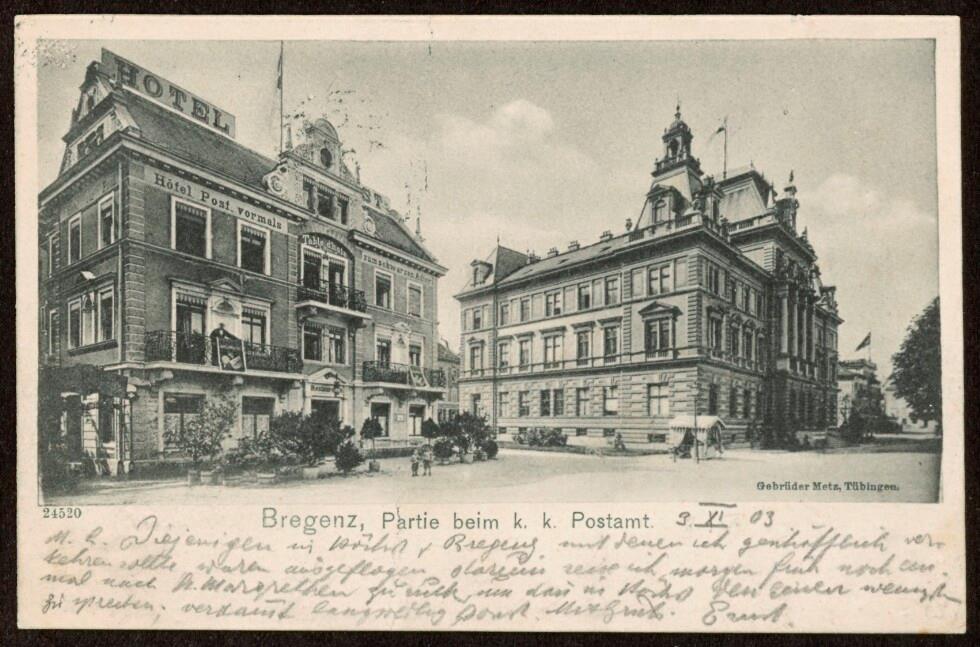 HOTEL
Hôtel Post, vormals
Table d'hote
zum schwarzen Adler
Gebrüder Metz, Tübingen.
24520
Bregenz, Partie beim k. k. Postamt. 3. XI 03
M. L. Diejenigen in Höchst & Bregenz mit denen ich geschäftlich ver-
kehren sollte waren ausgeflogen darum reise ich morgen früh noch ein-
mal nach St. Margrethen zurück, um dan in Höchst den einen wenigst.
zu sprechen. verdamt langweilig sonst. Mit Gruss. Ernst.